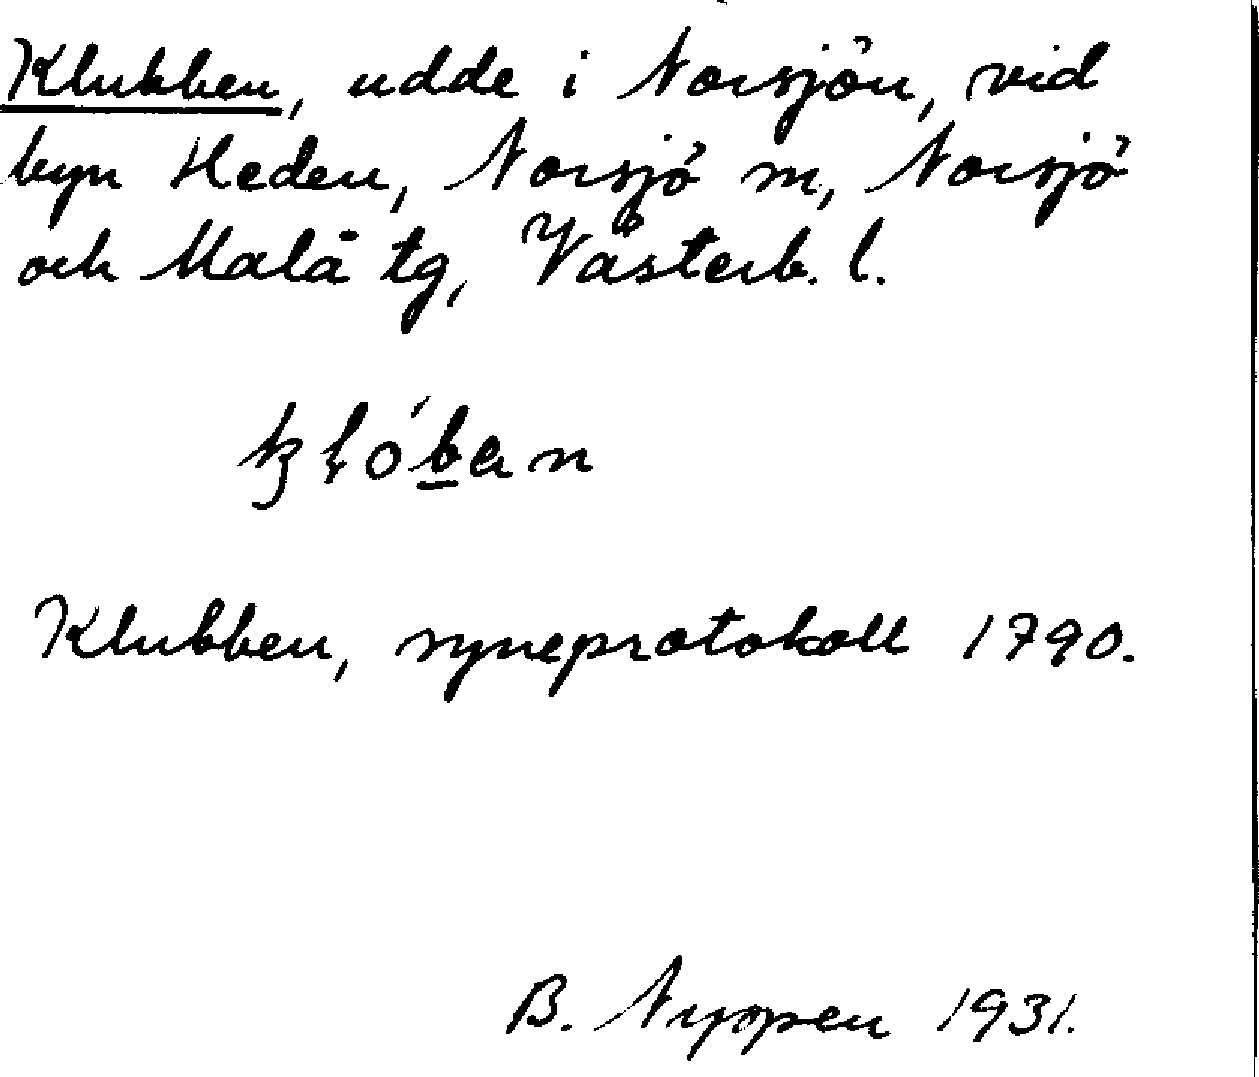 Klubben, udde i Norsjön, vid
byn Heden, Norsjö m, Norsjö
och Malå tg, Västerb. l.
Klubben, syneprotokoll 1790.
B. Nyopen 1931.